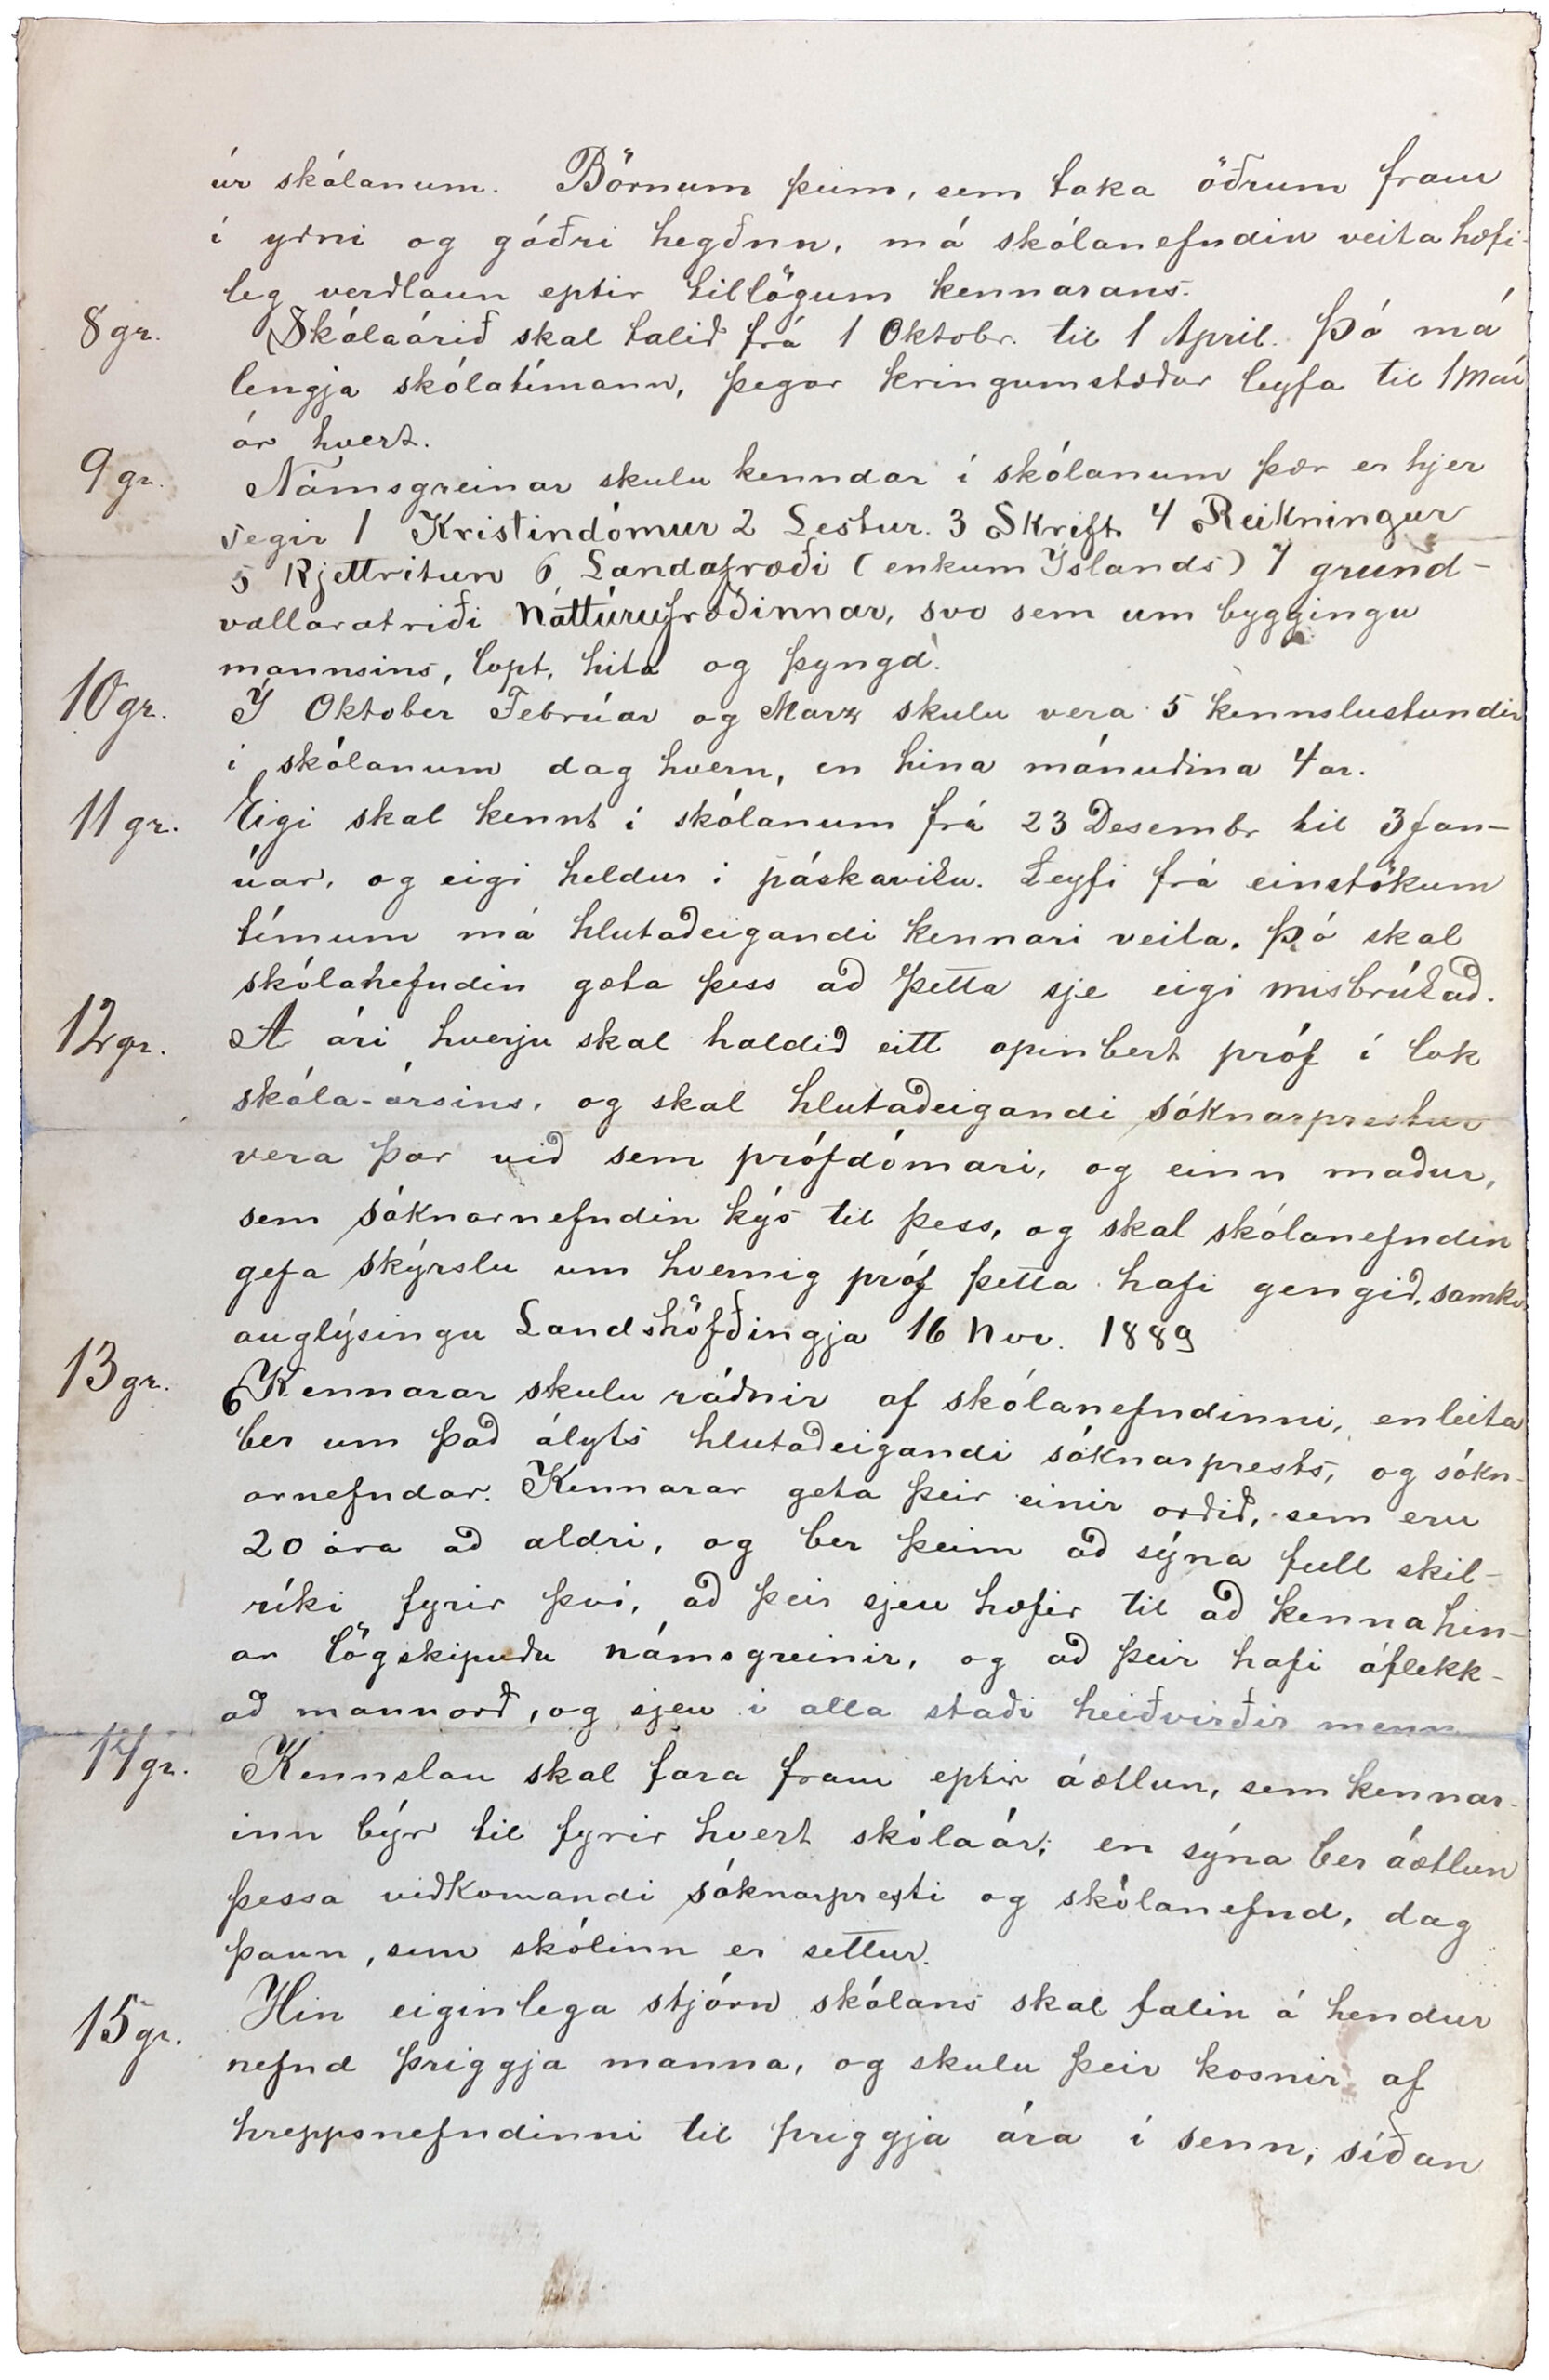 úr skólanum. Börnum þeim, sem taka öðrum fram
í yðni og góðri hegðun, má skólanefndin veita hæfi-
leg verðlaun eptir tillögum kennarans.
8 gr. Skólaárið skal talið frá 1 Oktobr. til 1 April. Þó má
lengja skólatímann, þegar kringumstæður leyfa til 1 Maí
ár hvert.
9 gr. Námsgreinar skulu kenndar í skólanum þær er hjer
segir 1 Kristindómur 2 Lestur. 3 Skrift 4 Reikningur
5 Rjettritun 6 Landafræði (enkum Íslands) 7 grund-
vallaratriði Náttúrufræðinnar, svo sem um byggingu
mannsins, lopt, hita og þyngd.
10 gr. Í Október Febrúar og Marz skulu vera 5 kennslustundir
í skólanum dag hvern, en hina mánuðina 4ar.
11 gr. Eigi skal kennt í skólanum frá 23 Desembr til 3 Jan-
úar, og eigi heldur í páskaviku. Leyfi frá einstökum
tímum má hlutaðeigandi kennari veita. Þó skal
skólanefndin gæta þess að þetta sje eigi misbrúkað.
12 gr. Á ári hverju skal haldið eitt opinbert próf í lok
skóla-ársins, og skal hlutaðeigandi sóknarprestur
vera þar við sem prófdómari, og einn maður,
sem sóknarnefndin kýs til þess, og skal skólanefndin
gefa skýrslu um hvernig próf þetta hafi gengið, samkv.
auglýsingu Landshöfðingja 16 Nov. 1889
13 gr. Kennarar skulu ráðnir af skólanefndinni, en leita
ber um það ályts hlutaðeigandi sóknarprests, og sókn-
arnefndar. Kennarar geta þeir einir orðið, sem eru
20 ára að aldri, og ber þeim að sýna full skil-
ríki fyrir því, að þeir sjeu hæfir til að kenna hin-
ar lögskipuðu námsgreinir, og að þeir hafi óflekk-
að mannorð, og sjeu í alla staði heiðvirðir menn
14 gr. Kennslan skal fara fram eptir áætlun, sem kennar-
inn býr til fyrir hvert skólaár; en sýna ber áætlun
þessa viðkomandi sóknarpresti og skólanefnd, dag
þann, sem skólinn er settur.
15 gr. Hin eiginlega stjórn skólans skal falin á hendur
nefnd þriggja manna, og skulu þeir kosnir af
hreppsnefndinni til þriggja ára í senn; síðan